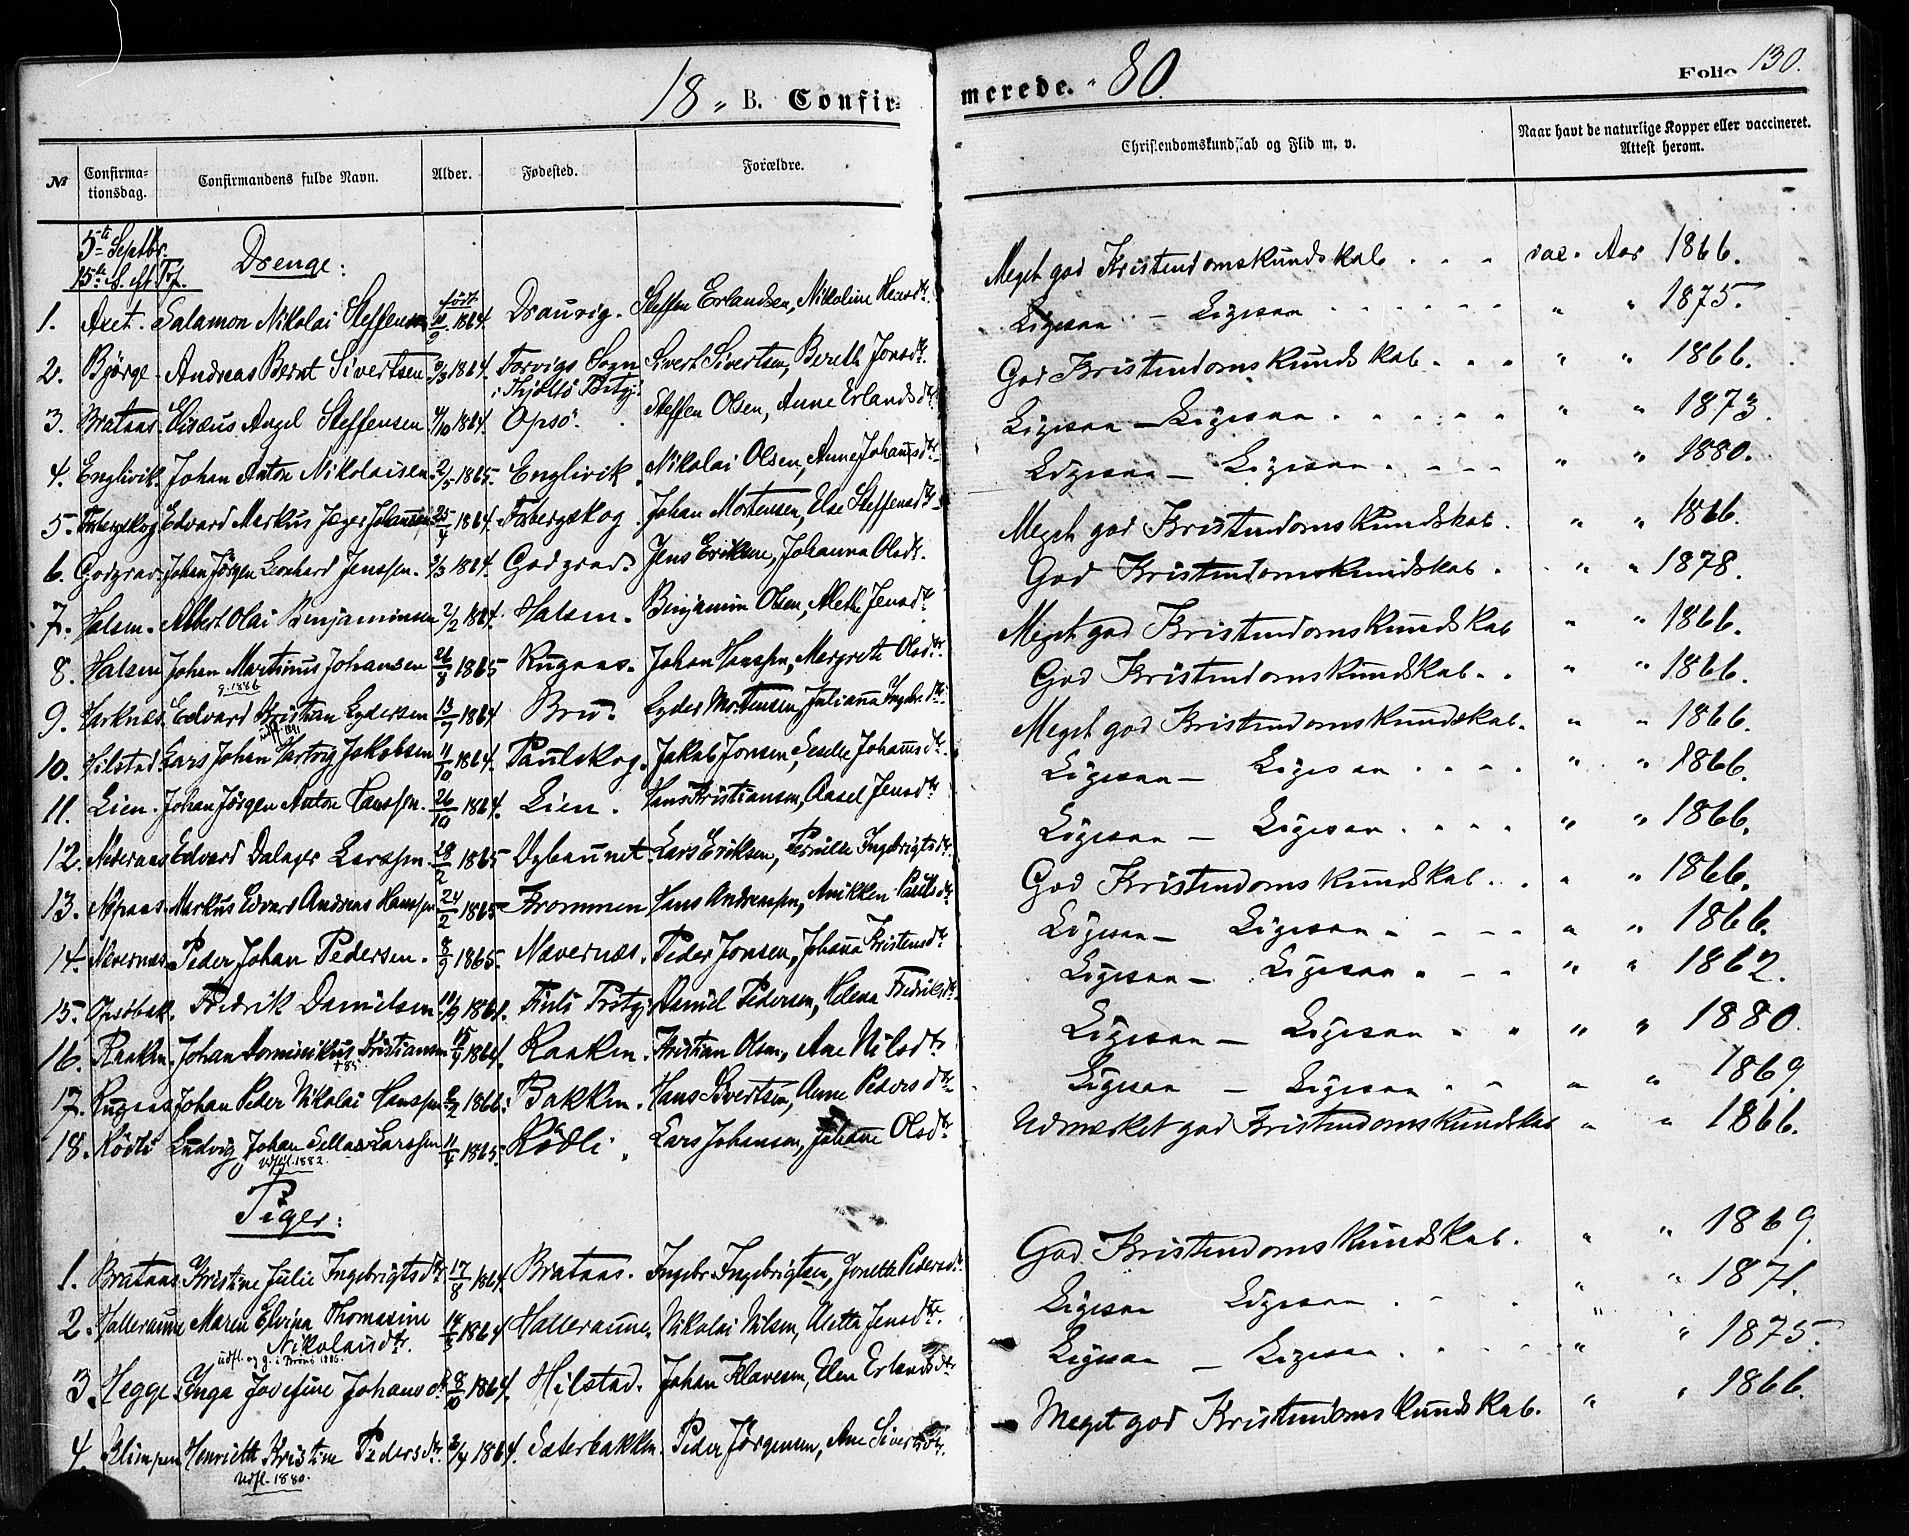 18 " B. Confir-merede. " 80. Folio 130.
№ Confirma-tionsdag. Confirmandens fulde Navn. Alder. Fødested. Forældre. Christendomskundskab og Flid m. v. Naar havt de naturlige Kopper eller vaccineret. Attest herom.
5te Septbr.
15de S. eft. Tref. Drenge:
1. Axet. Salamon Nikolai Steffensen født 1864. Drauvig. Steffen Erlandsen, Nikoline Hansdtr. Meget god Kristendomskundskab . . . vac. Aar 1866.
2. Bjørge Andreas Bernt Sivertsen 3/3 1864. Forvigs Sogn i Thjøttø Prstgj. Sivert Sivertsen, Bereth Jonsdtr. Ligesaa - Ligesaa " " 1875.
3. Brataas. Elisæus Angel Steffensen 4/10 1864. Opsø. Steffen Olsen, Anne Erlandsdtr. God Kristendomskundskab . . . " " 1866.
4. Englivik. Johan Anton Nikolaisen 2/5 1865. Englivik. Nikolai Olsen, Anne Johannsdtr. Ligesaa - Ligesaa " " 1873.
5. Fosbergskog Edvard Markus Jæger Johansen 25/4 1864. Fosbergskog. Johan Mortensen, Else Steffensdtr. Ligesaa - Ligesaa " " 1880.
6. Godgrav. Johan Jørgen Leonhard Jenssen. 3/3 1864. Godgrad. Jens Eriksen, Johanna Olsdr. Meget god Kristendomskundskab. " " 1866.
7. Halsen. Albert Olai Benjaminsen 2/2 1864. Halsen. Benjamin Olsen, Alethe Jensdtr. God Kristendomskundskab. " " 1878.
8. Halsen Johan Martinus Johansen 26/8 1865 Rugaas. Johan Hanssen, Margrete Olsdtr. Meget god Kristendomskundskab " " 1866.
g. 1886
9. Harknæs. Edvard Kristian Lydersen 13/7 1864 Bru. Lyder Mortensen, Julianna Ingebr.dtr. God Kristendomskundskab. . " " 1866.
10. Hilstad. Lars Johan Hartvig Jakobsen 11/10 1864. Paulskog. Jakob Jonsen, Seselie Johannsdtr. Meget god Kristendomskundskab. " " 1866.
11. Lien. Johan Jörgen Anton Hanssen. 26/10 1864. Lien. Hans Kristiansen, Aasel Jensdtr. Ligesaa - Ligesaa . . . . " " 1866.
12. Nederaas Edvard Dalager Larssen. 28/2 1865 Lars Eriksen, Pernille Ingebrigtsdtr. Ligesaa - Ligesaa. . . . " " 1866.
13. Markus Edvard Andreas Hanssen 24/2 1865 Frommen Hans Andreassen, Anikken Paulsdtr. God Kristendomskundskab. . " " 1866.
14. Nævernæs Peder Johan Pedersen. 8/9 1865. Nævernæs. Peder Jonsen, Johanna Kristensdtr. Ligesaa - Ligesaa " " 1866.
15. Opsöbak. Fredrik Danielsen Daniel Pedersen, Helena Fredriksdtr. Ligesaa - Ligesaa " " 1862.
16. Raaken. Johan Dominikus Kristiansen 15/9 1864. Raaken. Kristian Olsen, Ane Nilsdtr. Ligesaa - Ligesaa " " 1880.
17. Rugaas Johan Peder Nikolai Hanssen 2/2 1866. Bakken. Hans Sivertsen, Anne Pedersdtr. Ligesaa - Ligesaa " " 1869.
18. Rödli Ludvig Johan Sellaas Larssen 11/4 1865. Rödli. Lars Johansen, Johanne Olsdtr. Udmærket god Kristendomskundskab " " 1866.
Udfl. 1882.
Piger:
1. Brataas Kristine Julie Ingebrigtsdtr 17/8 1864. Brataas. Ingebr. Ingebrigtsen, Jonetta Pedersdtr. God Kristendomskundskab. " " 1869.
2. Halleraune Maren Elvina Thomasine Nikolaisdtr. 14/3 1864 Halleraune. Nikolai Nilsen, Aletta Jensdtr. Ligesaa Ligesaa " " 1871.
udfl. og g. i Brønø 1885.
3. Hegge. Inga Josefine Johansdtr 1864. Hilstad. Johan Klavesen, Elen Erlandsdtr Ligesaa - Ligesaa " " 1875.
4. Klimpen Henriette Kristine Pedersdtr. 1864. Sæterbakken. Peder Jörgensen, Ane Sivertsdtr. Meget god Kristendomskundskab. " " 1866.
Udfl. 1880.